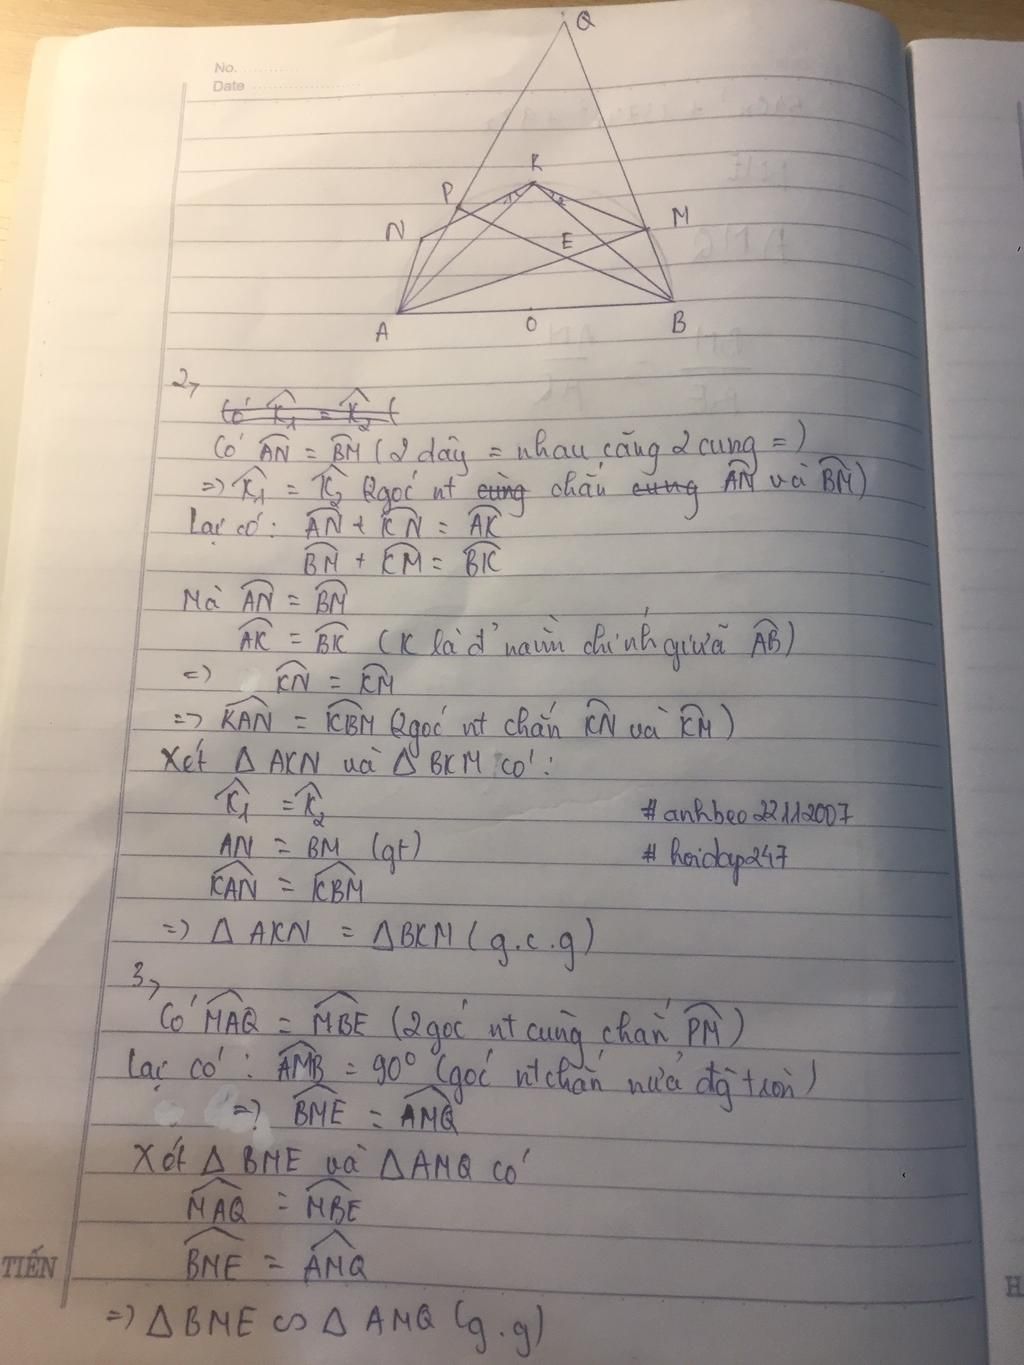 Q
No.
Date
K
P
M
N
1
2
E
A
O
B
2,
Có K̂1 = K̂2 (
Có AN = BM (2 dây = nhau căng 2 cung =)
=> K̂1 = K̂2 (2góc nt cùng chắn cung AN và BM)
Lại có: AN + KN = AK
BM + KM = BK
Mà AN = BM
AK = BK (K là đ' nằm chính giữa AB)
=> KN = KM
=> KAN = KBM (2góc nt chắn KN và KM)
Xét Δ AKN và Δ BKM có:
K̂1 = K̂2
#anhbeo22112007
AN = BM (gt)
#hoidap247
KAN = KBM
=> Δ AKN = ΔBKM (g.c.g)
3,
Có MAQ = MBE (2góc nt cùng chắn PM)
Lại có: AMB = 90° (góc nt chắn nửa đg tròn)
=> BME = AMQ
Xét Δ BME và Δ AMQ có
MAQ = MBE
BME = AMQ
TIẾN
H
=> Δ BME ∽ Δ AMQ (g.g)